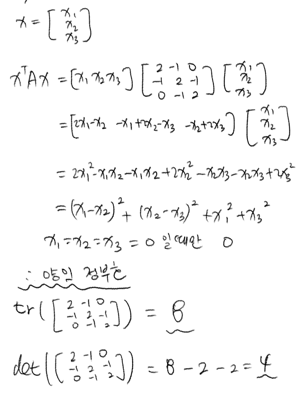 x = [x₁ x₂ x₃]
xᵀAx = [x₁ x₂ x₃] [2 -1 0 -1 2 -1 0 -1 2] [x₁ x₂ x₃]
= [2x₁-x₂ -x₁+2x₂-x₃ -x₂+2x₃] [x₁ x₂ x₃]
= 2x₁²-x₁x₂-x₁x₂+2x₂²-x₂x₃-x₂x₃+2x₃²
= (x₁-x₂)² + (x₂-x₃)² + x₁² + x₃²
x₁=x₂=x₃=0 일 때만 0
∴ 양의 정부호
tr([2 -1 0 -1 2 -1 0 -1 2]) = 8
det([2 -1 0 -1 2 -1 0 -1 2]) = 8-2-2 = 4